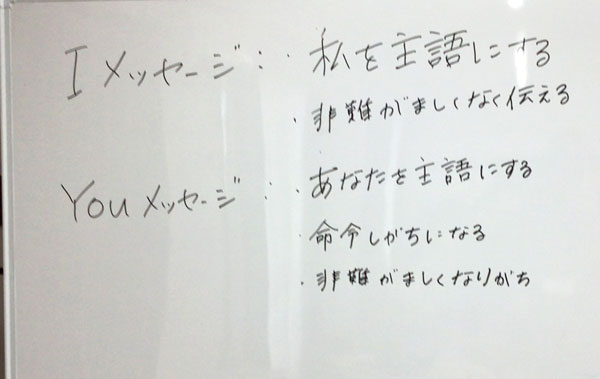 Iメッセージ:・私を主語にする
・非難がましくなく伝える
Youメッセージ:・あなたを主語にする
・命令しがちになる
・非難がましくなりがち